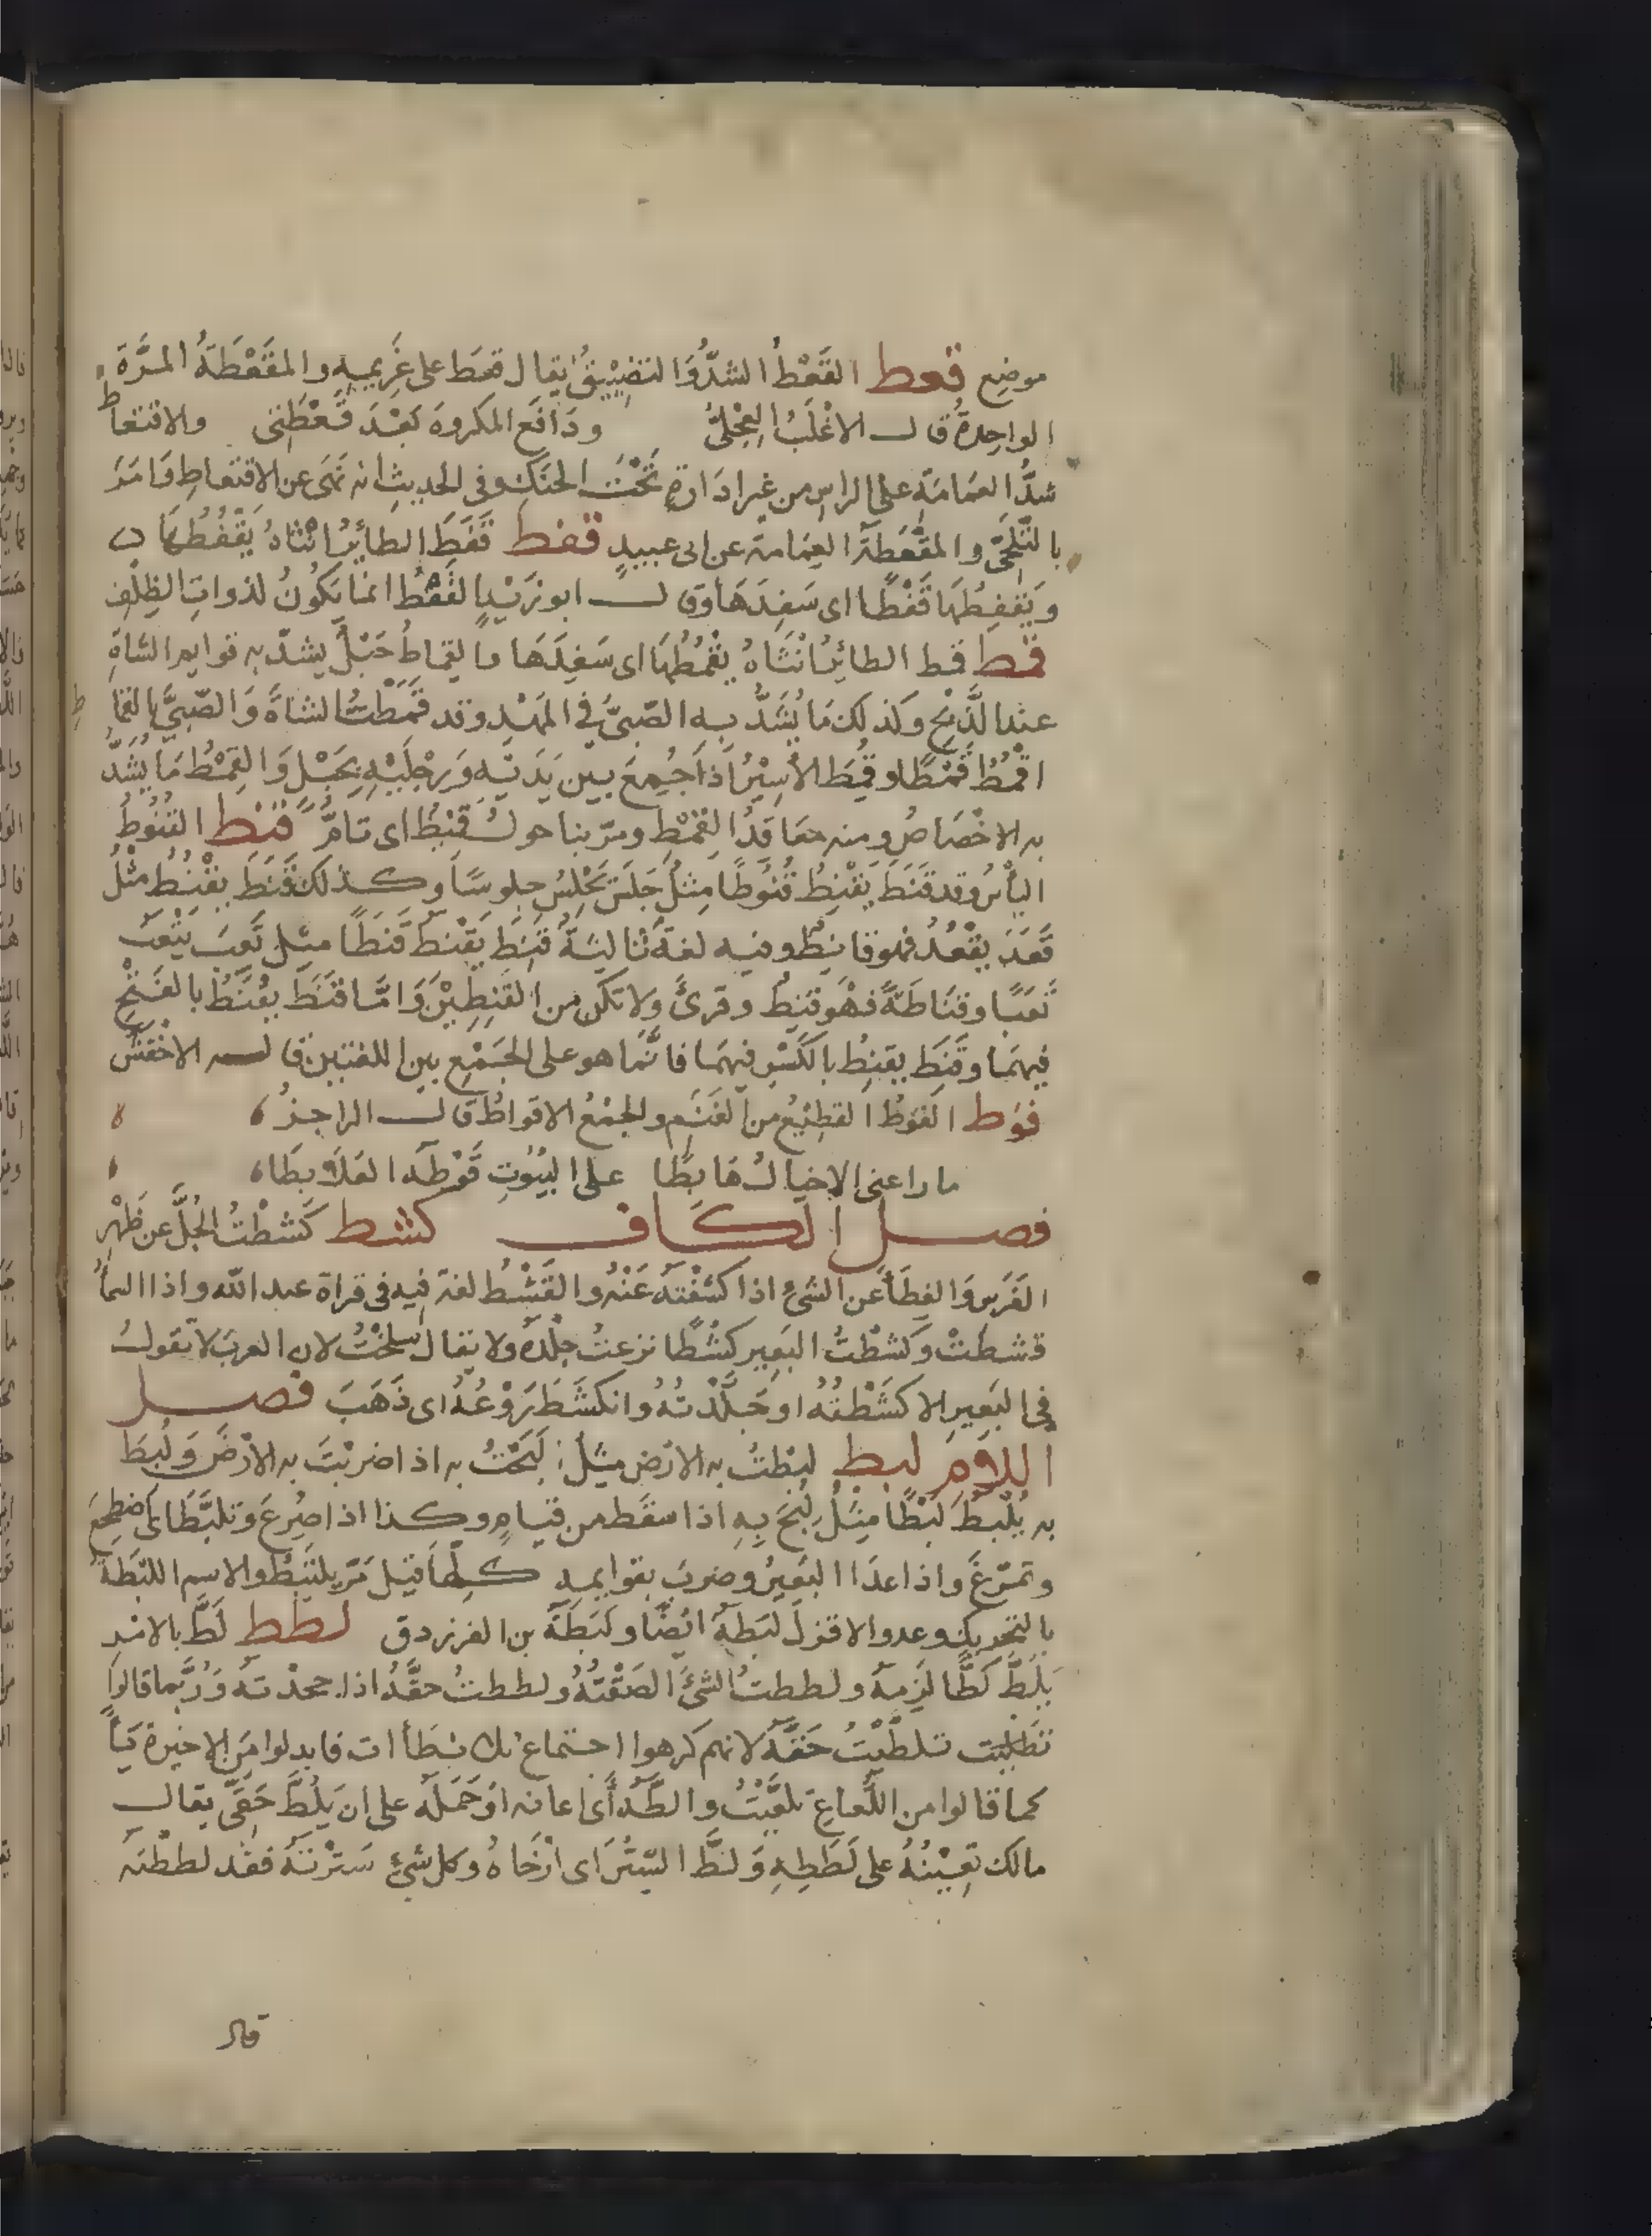 موضِع قعط القَعْطُ الشدُّ وَالتضيِيْقُ يقال قعَط على غَرِيمِهِ والمقَعْطَةُ المرَّةَ
الواحِدةُ قال الاغْلَبُ العِجْلىُّ ودَافَع المكروهَ بَعْدَ قَعْطَتِى والاقتعاط
شدُّ العمَامَةِ على الراسِ من غير ادَارةٍ تَحْتَ الحنَكِ وفى الحديثِ انه نَهَى عن الاقتعاطِ وَامَرَ
بالتَّلَحِّى والمقْعَطَةُ العِمَامة عن ابى عبيدٍ قفط قَفَطَ الطائرُ انْثاهُ يَقْفُطُهَا
ويَقفِطُهَا قَفْطًا اى سَفِدَهَا وقال ابو زَيْدٍ القَفْطُ انما يَكُونُ لذواتِ الظِلْفِ
قمط قمط الطائِرُ انْثَاهُ يقْمُطُهَا اى سَفِدَهَا والقِمَاطُ حَبْلٌ يشدّ به قوايم الشاةِ
عند الذَّبْحِ وكذلك مَا يُشَدُّ به الصّبىُّ فى المَهْدِ وقد قمَطْتُ الشاةَ وَالصّبىَّ بالقمَا ط
اقْمُطُ قَمْطًا وقُمِطَ الأسِيْرُ اذَا جُمِعَ بين يَدَيْه وَرِجْلَيْهِ بِحَبْلٍ وَالقِمْطُ مَا يُشَدُّ
به الاخْصَاصُ ومنه معَاقِدُ القِمْطِ ومرّ بنا حولٌ قَمِيْطٌ اى تامٌّ قنط القُنُوطُ
اليأسُ وقد قَنَطَ يَقْنِطُ قُنُوطًا مِثلُ جَلَسَ يَجْلِسُ جلوسًا وكذلك قَنَطَ يقْنُطُ مثْلُ
قَعَدَ يقْعُدُ فهو قانِطٌ وفيه لغةٌ ثالِثةٌ قَنِطَ يَقْنَطُ قَنطًا مثل تَعِبَ يَتْعَبُ
تَعَبًا وقنَاطَةً فهْوَ قنِطٌ وقرئَ ولا تكن من القَنِطِيْنَ وَامَّا قنَطَ يقْنَطُ بالفَتْحِ
فيهمَا وقَنِطَ يقنِطُ بالكَسْرِ فيهمَا فانَّما هو على الجَمْعِ بين اللغتين قاله الاخْفَشُ
قوط القَوْطُ القطِيْعُ من الغَنَمِ والجمْعُ الاقواطُ قال الراجزُ
ما راعنى الا خيالٌ هَابِطَا على البُيُوتِ قَوْطَهُ العُلَابِطَا
فصل الكاف كشط كَشَطْتُ الجُلَّ عن ظَهْرِ
الفَرَسِ وَالغِطَأَ عن الشىْءِ اذا كَشَفْتَهُ عَنْهُ والقَشْطُ لغة فيه فى قراة عبد الله واذا السمأُ
قشطتْ وكشطْتُ البَعِير كَشْطًا نزعتُ جِلْدَهُ ولا يقال سلخْتُ لان العرب لا تقولُ
فى البَعِيرِ الا كَشَطْتُهُ او جَلَّدْتُهُ وانكَشَطَ رَوْعُهُ اى ذَهَبَ فصل
اللام لبط لبَطْتُ به الارْض مثل لَبَجْتُ به اذا ضربْتَ به الارْضَ وَلُبِطَ
به يُلْبَطُ لَبْطًا مِثلُ لُبِجَ بِهِ اذا سقَط من قيامٍ وكذا اذا صُرِعَ وتلبَّطَ اى اضطجعَ
وتمرّغَ واذا عدَا البَعِيْرُ وضربَ بقوايمِهِ كلِّهَا قيل مَرّ يلتبِطُ والاسم اللبَطَةُ
بالتحريكِ وعدو الاقزلِ لبَطَةٌ ايْضًا ولَبَطَةُ بن الفرزدق لطط لَطَّ بالامْرِ
يَلِطُّ لَطًّا لَزِمَهُ ولططتُ الشىْءَ الصَقْتُهُ ولططتُ حقَّهُ اذا جحدْتَهُ وَرُبَّما قالوا
تلطّيْتُ حَقَّهُ لانهم كرهوا اجتماع ثلث طَأات فابدلوا من الاخيرة يَأً
كما قالوا من اللُّعاعِ تلعَّيْتُ والطَّهُ أى اعانه اوْ حَمَلَهُ على ان يَلُطَّ حَقّى يقال
مالك تعِيْنُهُ على لَطَطِهِ وَلَطَّ السِّتْرَ اى ارْخَاهُ وكل شىءٍ سَتَرْتَهُ فقد لططْتَه
قال